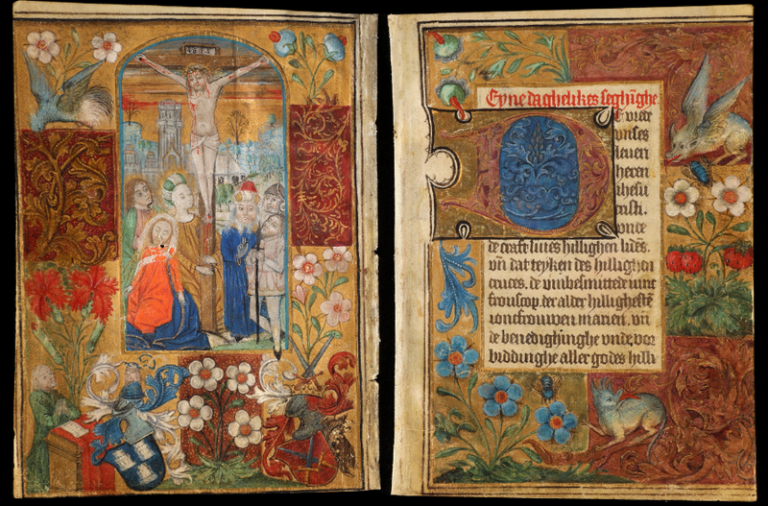 INRI
Eyne daghelikes seghīghe
DE vrede
vnses
leuen
heren
ihesu
cristi.
vnde
de craft sines hillighen lides.
vn̄ dat teyken des hillighen
cruces. de vnbesmittede iunc
frouscop. der alder hillighestē
ioncfrouwen marien. vn̄
de benedighinghe vnde vor
biddinghe aller godes hilli